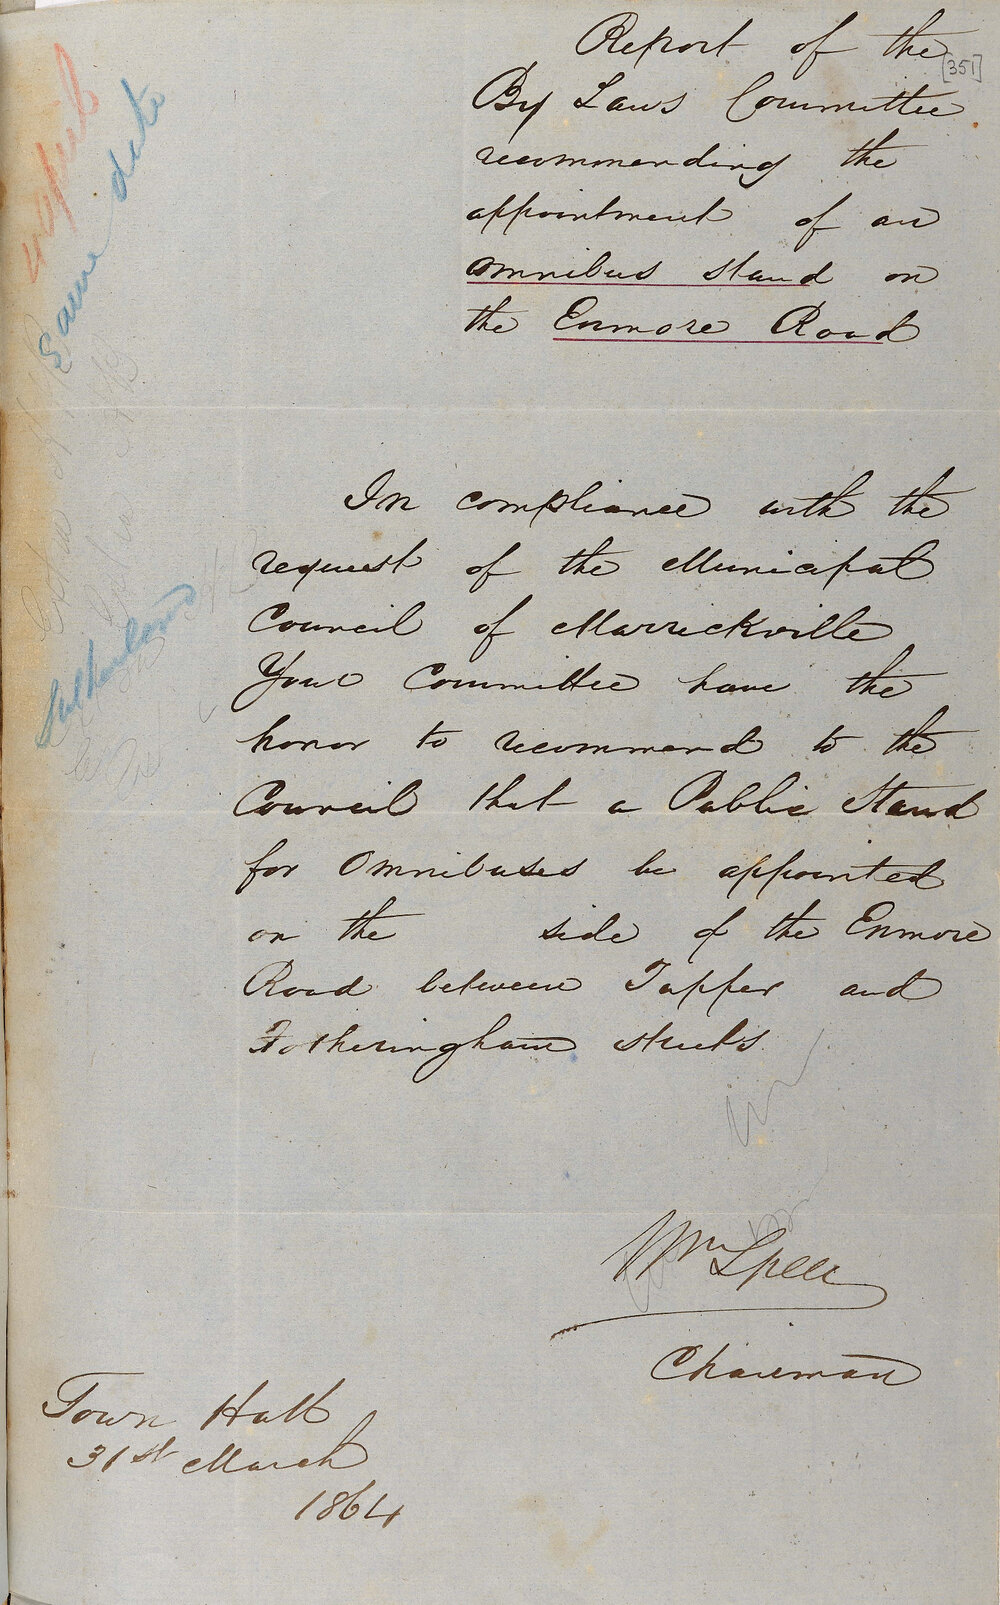 Report of the
[351]
By Laws Committee
recommending the
appointment of an
omnibus stand on
the Enmore Road
Same date
Sutherland
In compliance with the
request of the Municipal
Council of Marrickville
Your Committee have the
honor to recommend to the
Council that a Public Stand
for Omnibuses be appointed
on the side of the Enmore
Road between Tupper and
Fotheringham streets
Wm Speer
Chairman
Town Hall
31st March
1864